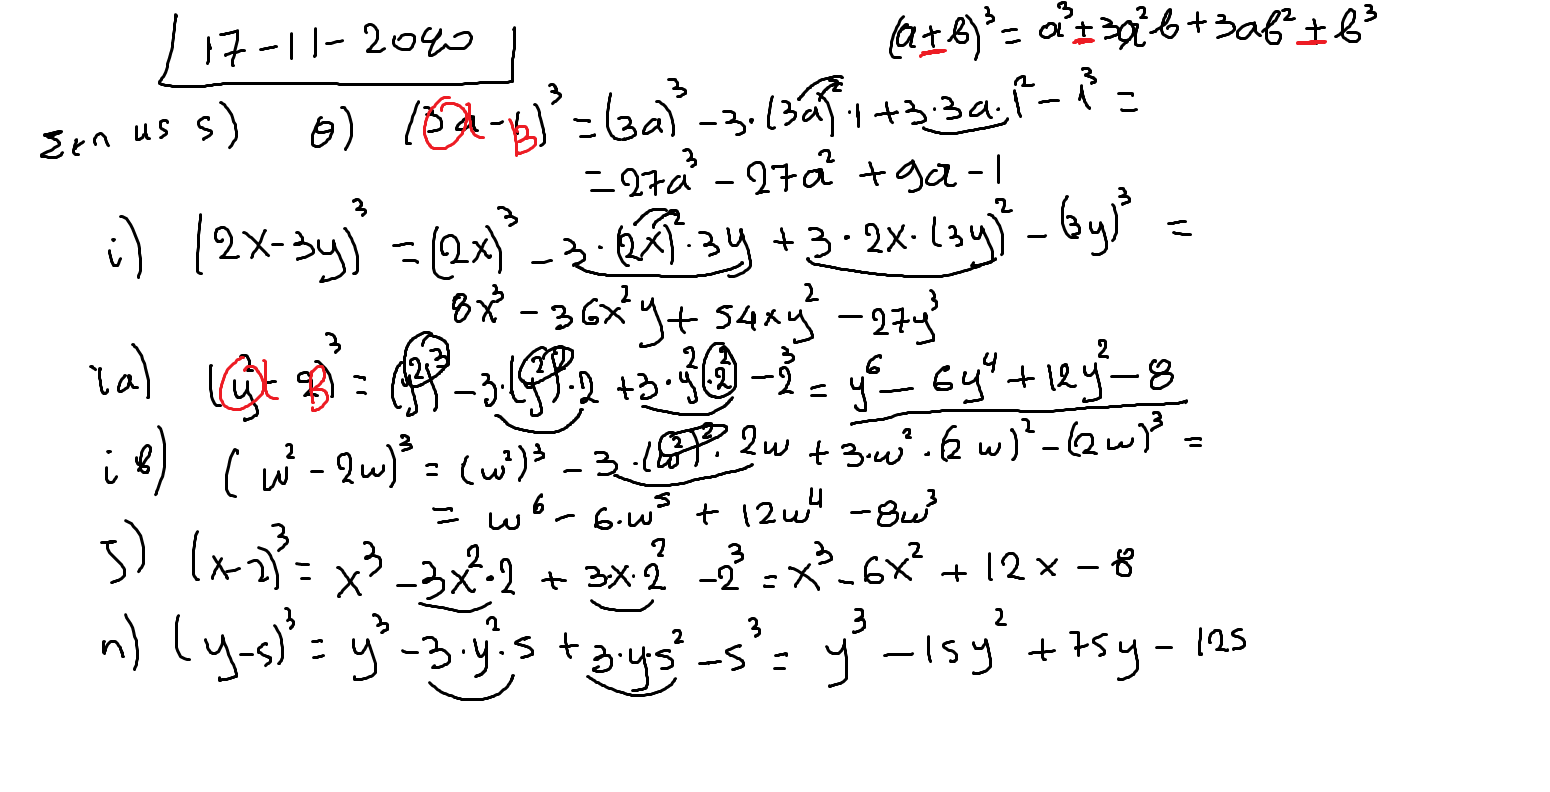 17-11-2020
(a±b)³ = a³ ± 3a²b + 3ab² ± b³
θ) (3a-1)³ = (3a)³ - 3·(3a)²·1 + 3·3a·1² - 1³ =
= 27a³ - 27a² + 9a - 1
i) (2x-3y)³ = (2x)³ - 3·(2x)²·3y + 3·2x·(3y)² - (3y)³ =
8x³ - 36x²y + 54xy² - 27y³
ια) (y²-2)³ = (y²)³ - 3·(y²)²·2 + 3·y²·2² - 2³ = y⁶ - 6y⁴ + 12y² - 8
ιβ) (w² - 2w)³ = (w²)³ - 3·(w²)²·2w + 3·w²·(2w)² - (2w)³ =
= w⁶ - 6·w⁵ + 12w⁴ - 8w³
ζ) (x-2)³ = x³ - 3x²·2 + 3·x·2² - 2³ = x³ - 6x² + 12x - 8
η) (y-5)³ = y³ - 3·y²·5 + 3·y·5² - 5³ = y³ - 15y² + 75y - 125